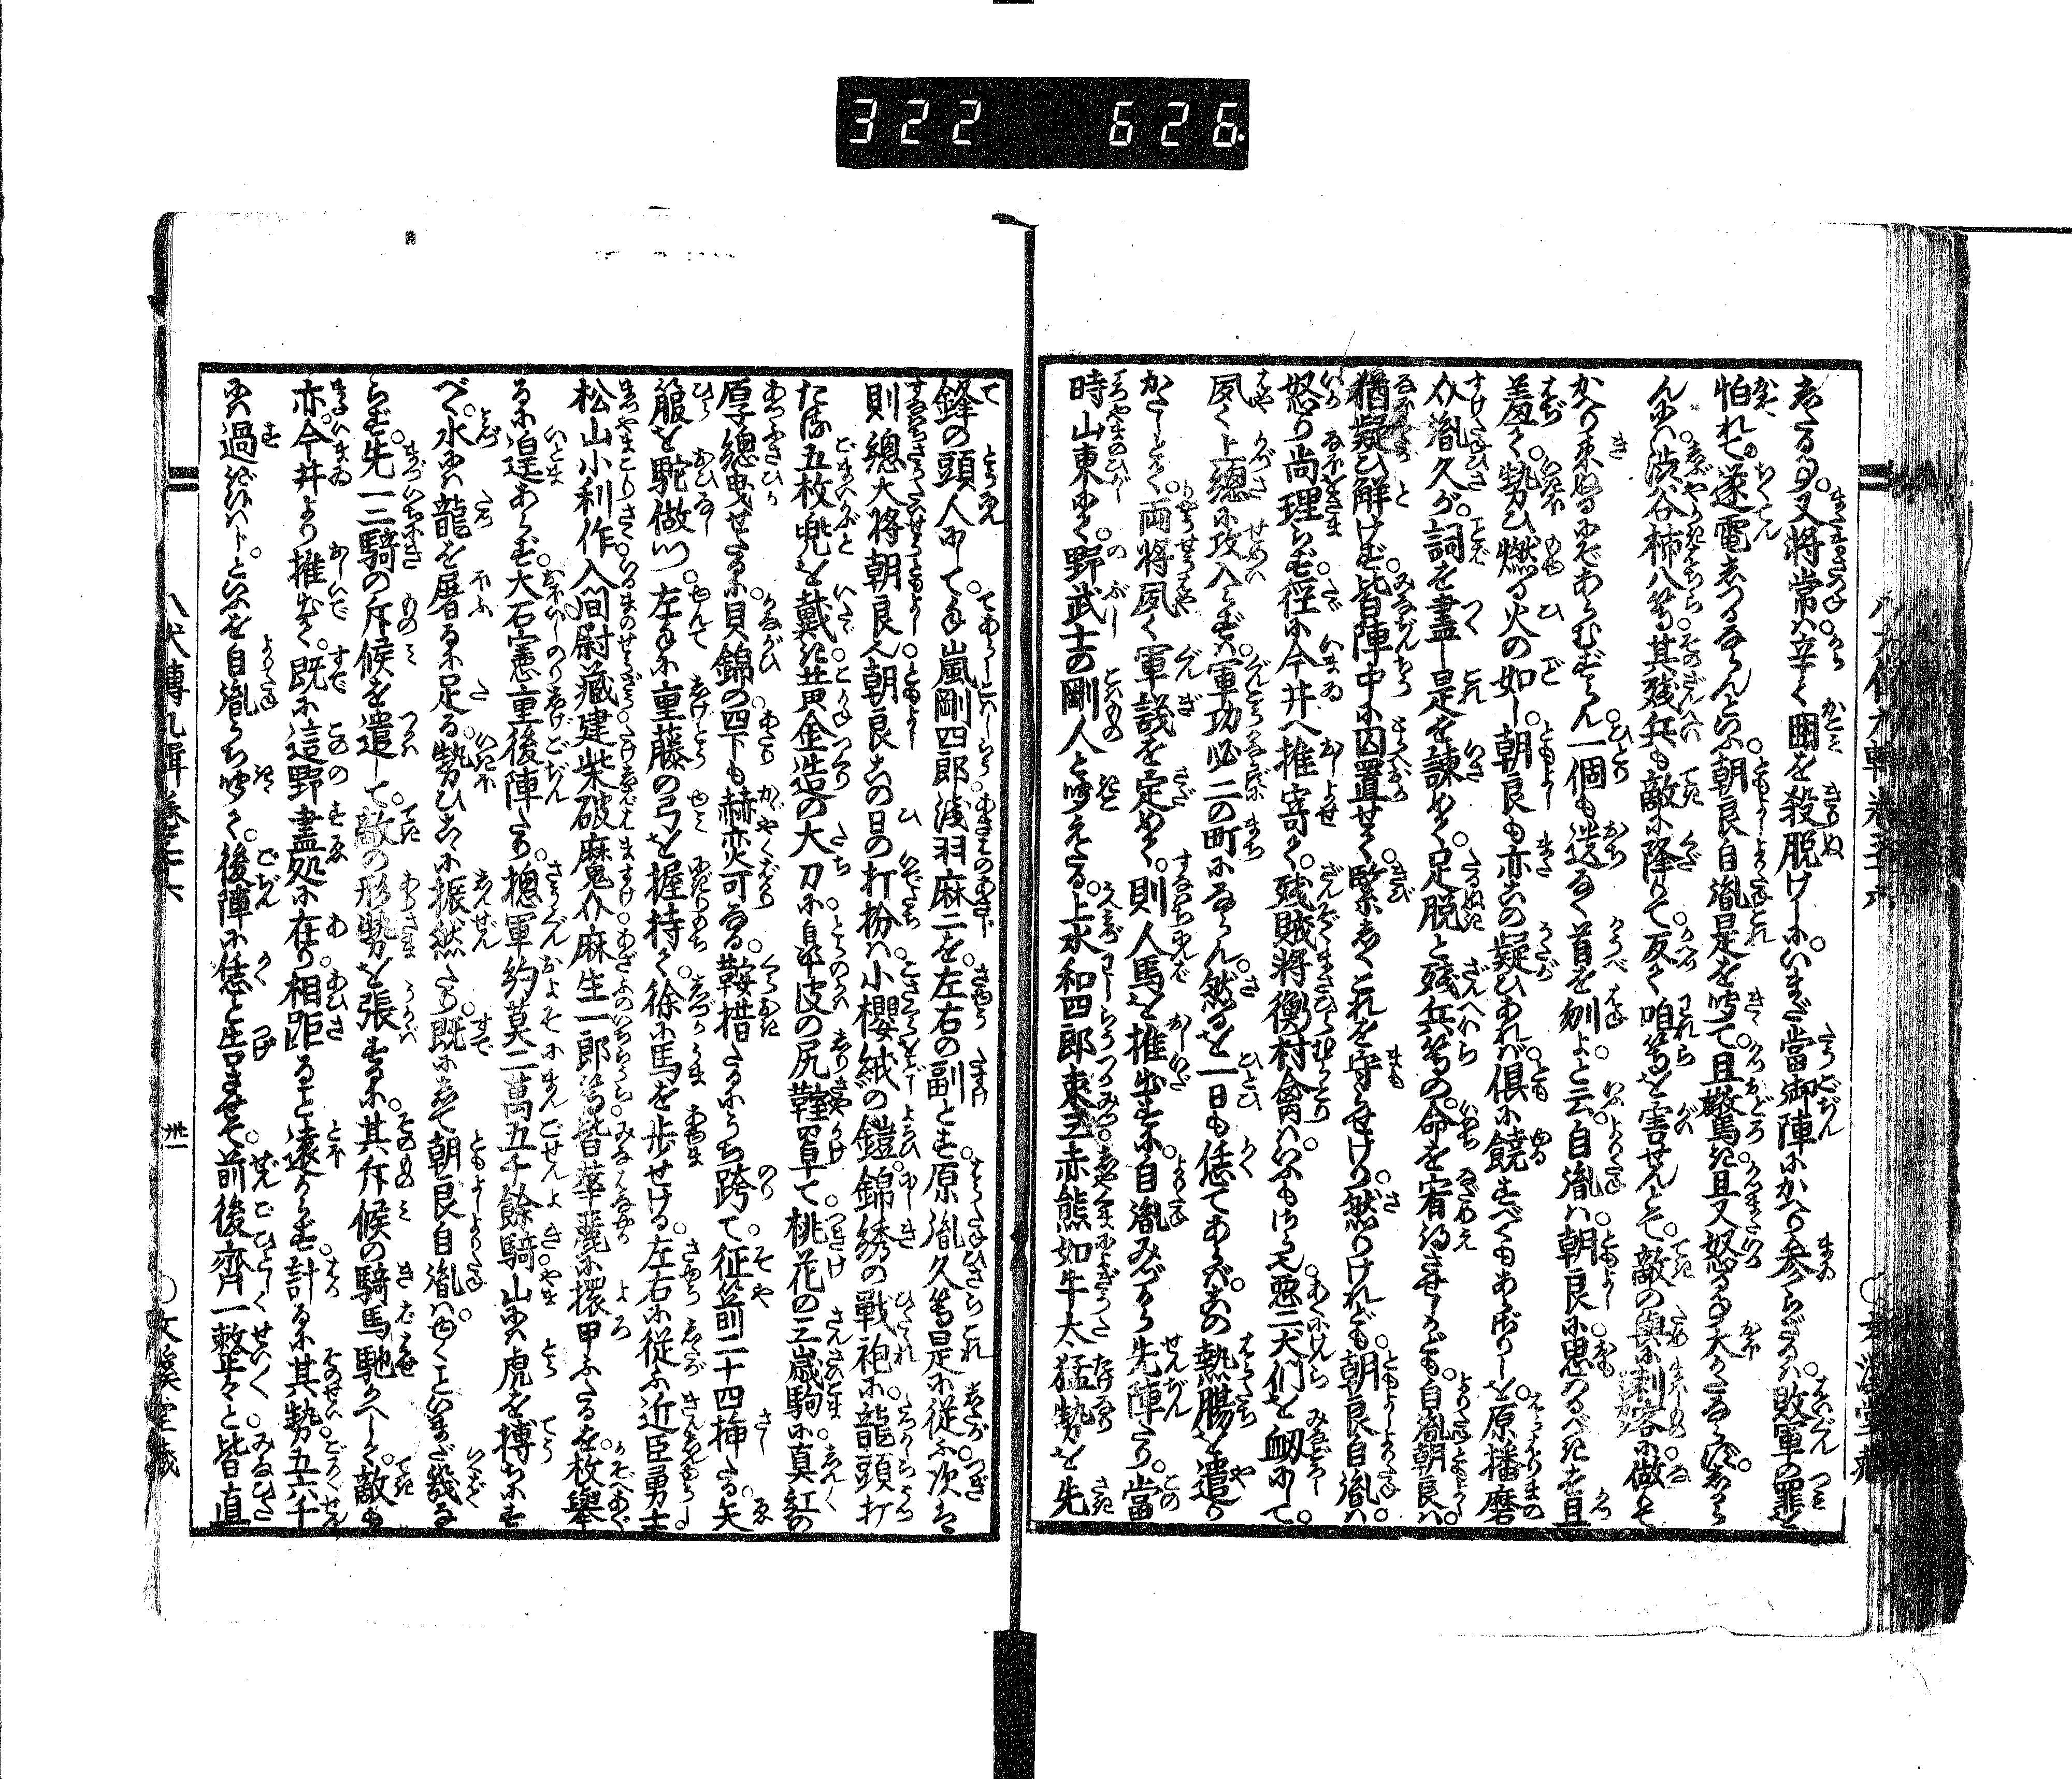 322 626
八犬傳九輯巻三十六
〇文溪堂藏
きたるのみ。又將常ハ辛く圍を殺脱けしに。いまだ當御陣にかへり参らざるハ敗軍の罪を
怕れて。逐電しつるならんといふ。朝良自胤是を吐て且驚き且又怒るのみ大かたならず。しから
んにハ渋谷柿八等其残兵も敵に降りて反て咱等を害せんとて。敵の與に刺客に做りて
かへり来ぬるにぞあらむずらん一個も遺なく首を刎よと云。自胤ハ朝良に思ふべき﻿を且
羞て勢ひ燃る火の如し。朝良も亦この疑ひあれバ。倶に饒すべくもあらざりしを。原播磨
介胤久が詞を盡し是を諫めて足脱と残兵等の命を宥めさせしかども。自胤朝良ハ。
猶疑ひ解けず。皆陣中に囚置せて緊しくこれを守らせけり。然りけれども。朝良自胤ハ
怒り尚理らず。徑に今井へ推寄て。残賊將衡村禽ハいふもさら也。悪二犬們を〓にして。
夙く上總に攻入らずバ。軍功必二の町にならん。然るを一日も恁てあらバ。この熱腸を遣り
かたしとて。両將夙く軍議を定めて。則人馬を推出すに。自胤みづから先陣たり。當
時山東にて。野武士の剛人と喚えたる。上水和四郎束三赤熊如牛太猛勢を先
鋒の頭人にして。手嵐剛四郎浅羽麻二を。左右の副とす。原胤久等是に従ふ。次ハ
則總大將朝良也。朝良この日の打扮ハ。小櫻絨の鎧。錦綉の戦袍に。龍頭打
たる五枚兜を戴き。黄金造の大刀に。皮の尻鞘罩て。桃花の三歳駒に。真紅の
厚總曳せたるに。貝錦の四下も赫奕可なる。鞍措たるにうち跨て。征箭二十四挿たる矢
服を駝做つ。左手に重藤の弓を握持て。徐に馬を歩せける。左右に従ふ近臣勇士。
松山小利作。入間尉藏。建柴破麻鬼介。麻生一郎等。皆華麗に擐甲ふたるを。枚舉
るに遑あらず。大石憲重後陣たり。摠軍約莫二萬五千餘騎。山にハ虎を搏ちにす
べく。水にハ龍を屠るに足る。勢ひこゝに振然たり。既にして朝良自胤ハ。ゆくこといまだ幾なら
らず。先一二騎の斥候を遣して。敵の形勢を張するに。其斥候の騎馬馳かへして。敵も
亦。今井より推出て。既に這野盡処に在り。相距ること遠からず。計るに其勢五六千
にハ過ざるべしといふを自胤うち吟て。後陣に恁と告させて。前後齊一整々と皆直
八犬傳九輯巻三十六
卅一
〇文溪堂藏